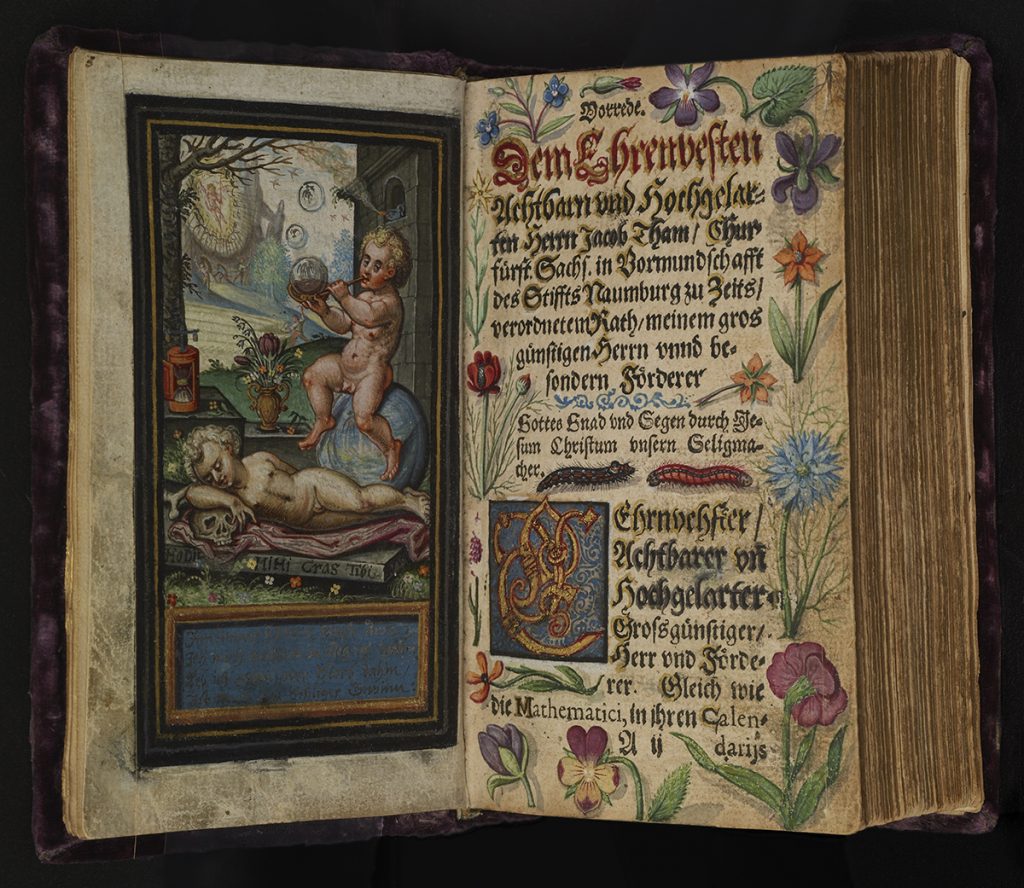 3
HODIE MIHI Cras Tibi.
Vorrede.
Dem Ehrenvesten
Achtbarn vnd Hochgelar-
ten Herrn Jacob Tham/ Chur
fürst Sachs. in Vormundschafft
des Stiffts Naumburg zu Zeits/
verordnetem Rath/ meinem gros
günstigen Herrn vnnd be-
sondern Förderer
Gottes Gnad vnd Segen durch Je-
sum Christum vnsern Seligma-
cher.
Ehrnvehster/
Achtbarer vñ
Hochgelarter
Grosgünstiger/
Herr vnd Förde-
rer. Gleich wie
die Mathematici, in ihren Calen-
A ij darijs